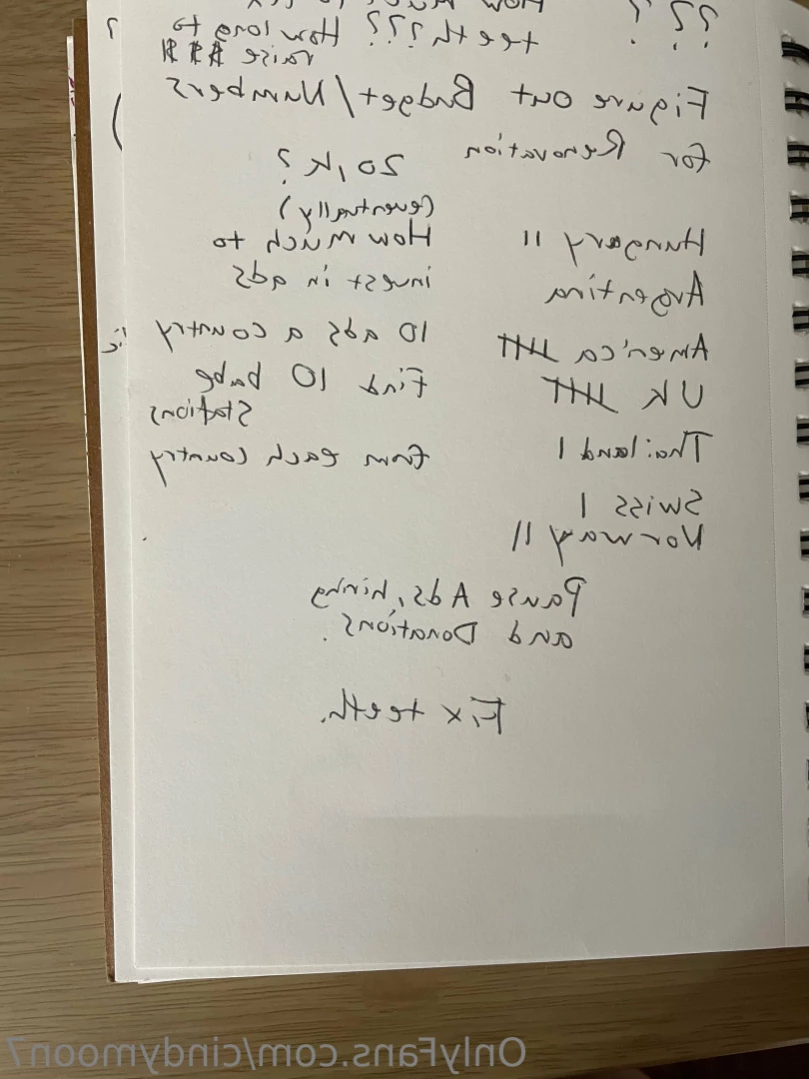 ?? ? How much to fix
teeth??? How long to
raise $$$
Figure out Budget/Numbers
for Renovation 20,k?
(eventually)
Hungary II
Argentina
America 卌
UK 卌
Thailand I
Swiss I
Norway II
How much to
invest in ads
10 ads a country
Find 10 babe
stations
from each country
Pause Ads, hiring
and Donations.
Fix teeth.
OnlyFans.com/cindymoon7